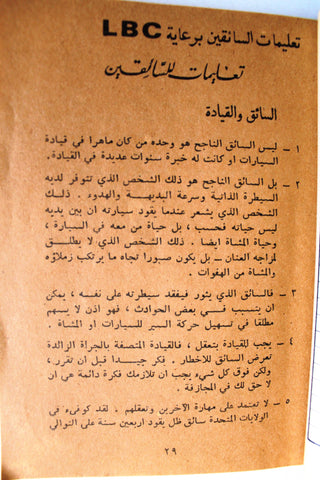 تعليمات السائقين برعاية LBC
تعليمات للسائقين
السائق والقيادة
١ — ليس السائق الناجح هو وحده من كان ماهرا في قيادة
السيارات او كانت له خبرة سنوات عديدة في القيادة.
٢ — بل السائق الناجح هو ذلك الشخص الذي تتوفر لديه
السيطرة الذاتية وسرعة البديهة والهدوء . ذلك
الشخص الذي يشعر عندما يقود سيارته ان بين يديه
ليس حياته فحسب ، بل حياة من معه في السيارة ،
وحياة المشاة ايضا . ذلك الشخص الذي لا يطلق
لمزاجه العنان — بل يكون صبورا تجاه ما يرتكب زملاؤه
والمشاة من الهفوات .
٣ — فالسائق الذي يثور فيفقد سيطرته على نفسه ، يمكن
ان يتسبب في بعض الحوادث ، فهو اذن لا يسهم
مطلقا في تسهيل حركة السير للسيارات او المشاة .
٤ — يجب القيادة بتعقل ، فالقيادة المتصفة بالجرأة الزائدة
تعرض السائق للاخطار . فكر جيدا قبل ان تقرر ،
ولكن فوق كل شيء يجب ان تلازمك فكرة دائمة هي ان
لا حق لك في المجازفة .
٥ — لا تعتمد على مهارة الآخرين وتعقلهم . لقد كوفىء في
الولايات المتحدة سائق ظل يقود اربعين سنة على التوالي
٢٩